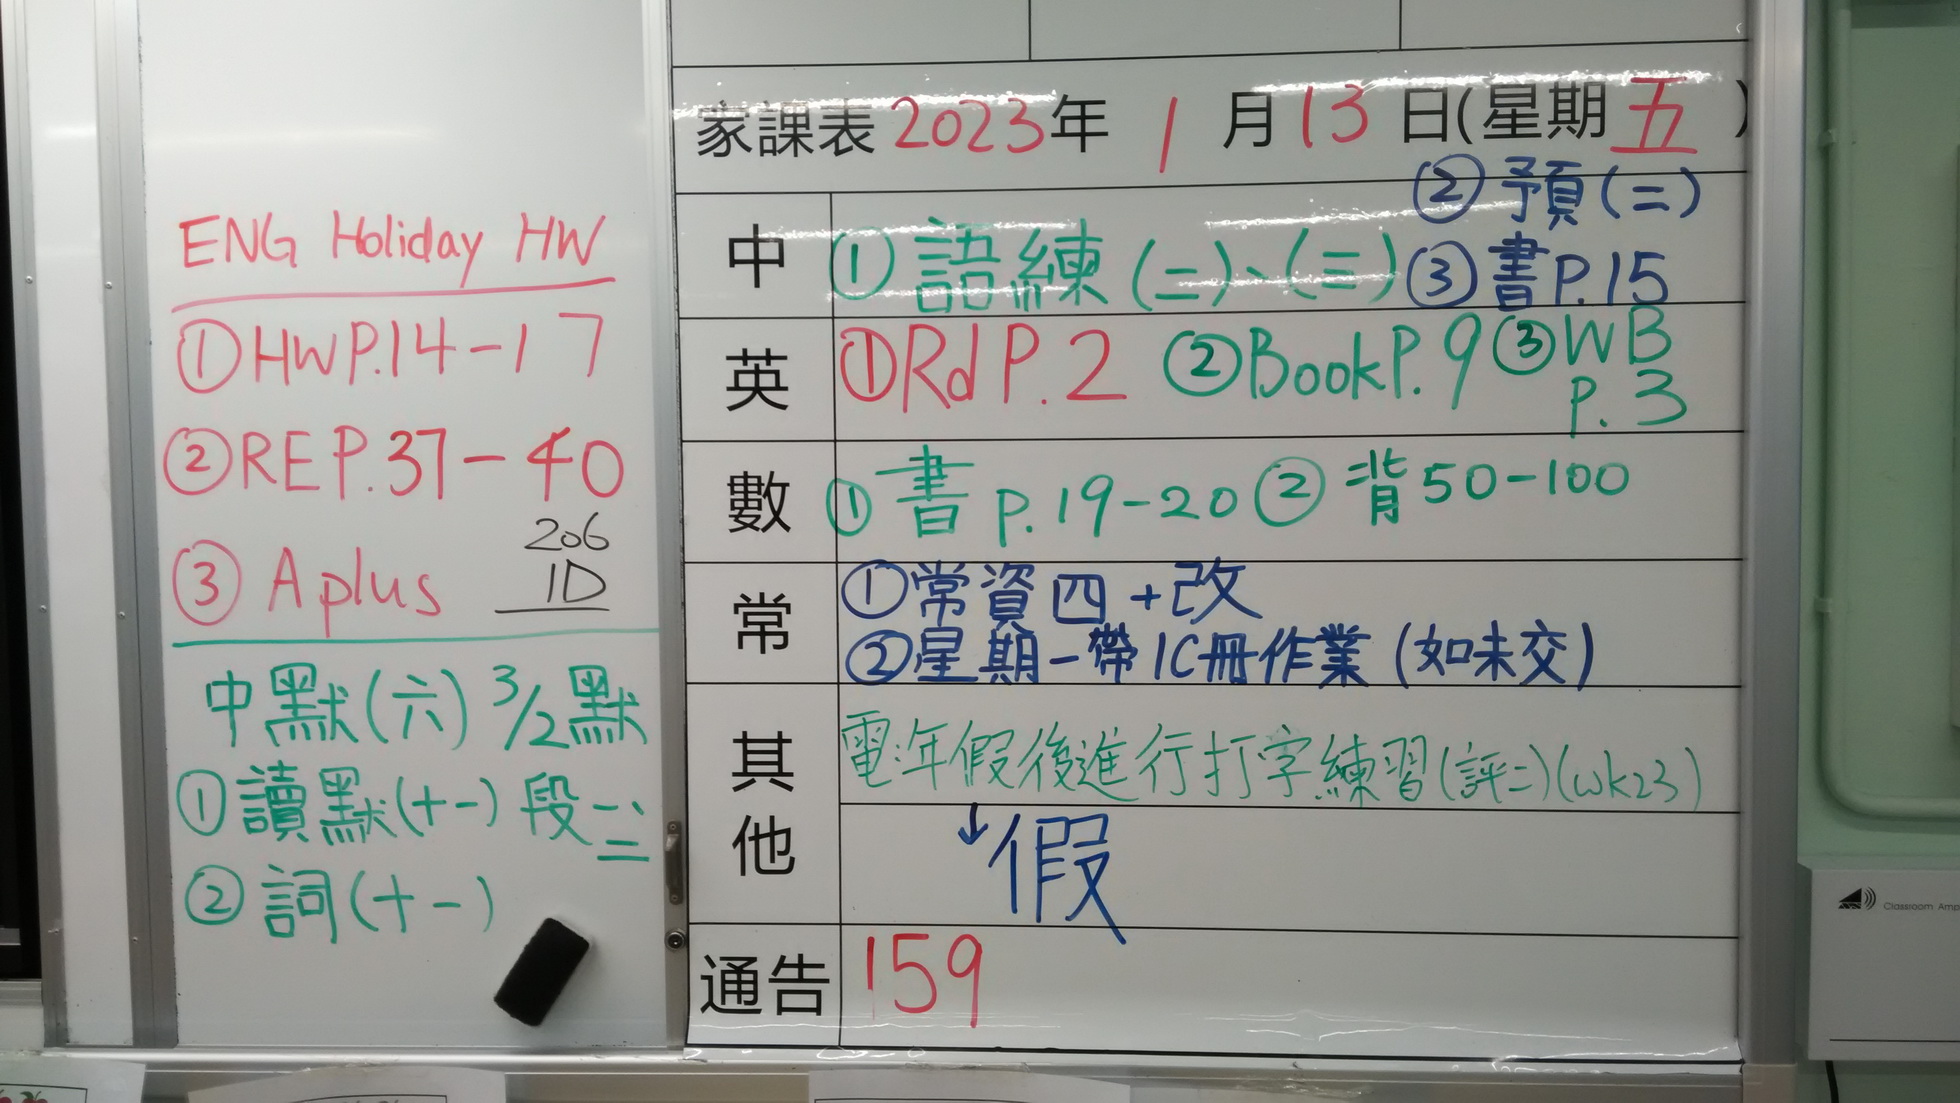 ENG Holiday HW
① HW P.14-17
② RE P.37-40
③ A plus
206
1D
中默(六) 3/2默
① 讀默(十一) 段一、二
② 詞(十一)
家課表 2023年 1 月 13 日(星期 五 )
中
① 語練(二)、(三)
② 預(二)
③ 書P.15
英
① Rd P.2 ② Book P.9 ③ WB
P.3
數
① 書 p.19-20 ② 背50-100
常
① 常資四+改
② 星期一帶IC冊作業(如未交)
其他
電:年假後進行打字練習(評二)(wk23)
↓假
通告
159
Classroom Amp